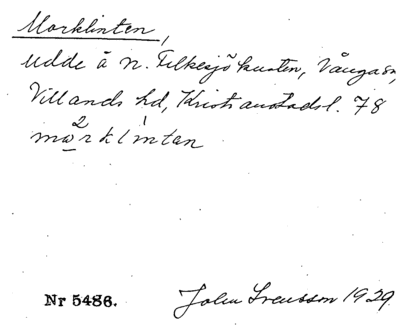 Marklinten,
Udde å n. Filkesjökusten, Vånga sn,
Villands hd, Kristianstadsl. 78
2 1
marklintan
Nr 5486.
John Svensson 1929.